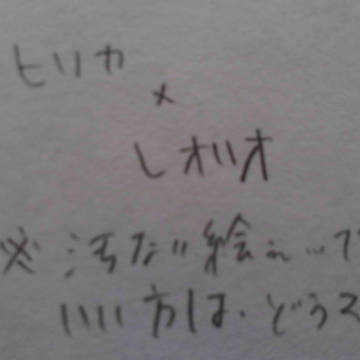 ヒソカ
×
レオリオ
※汚ない絵ん…で
いい方は、どうぞ